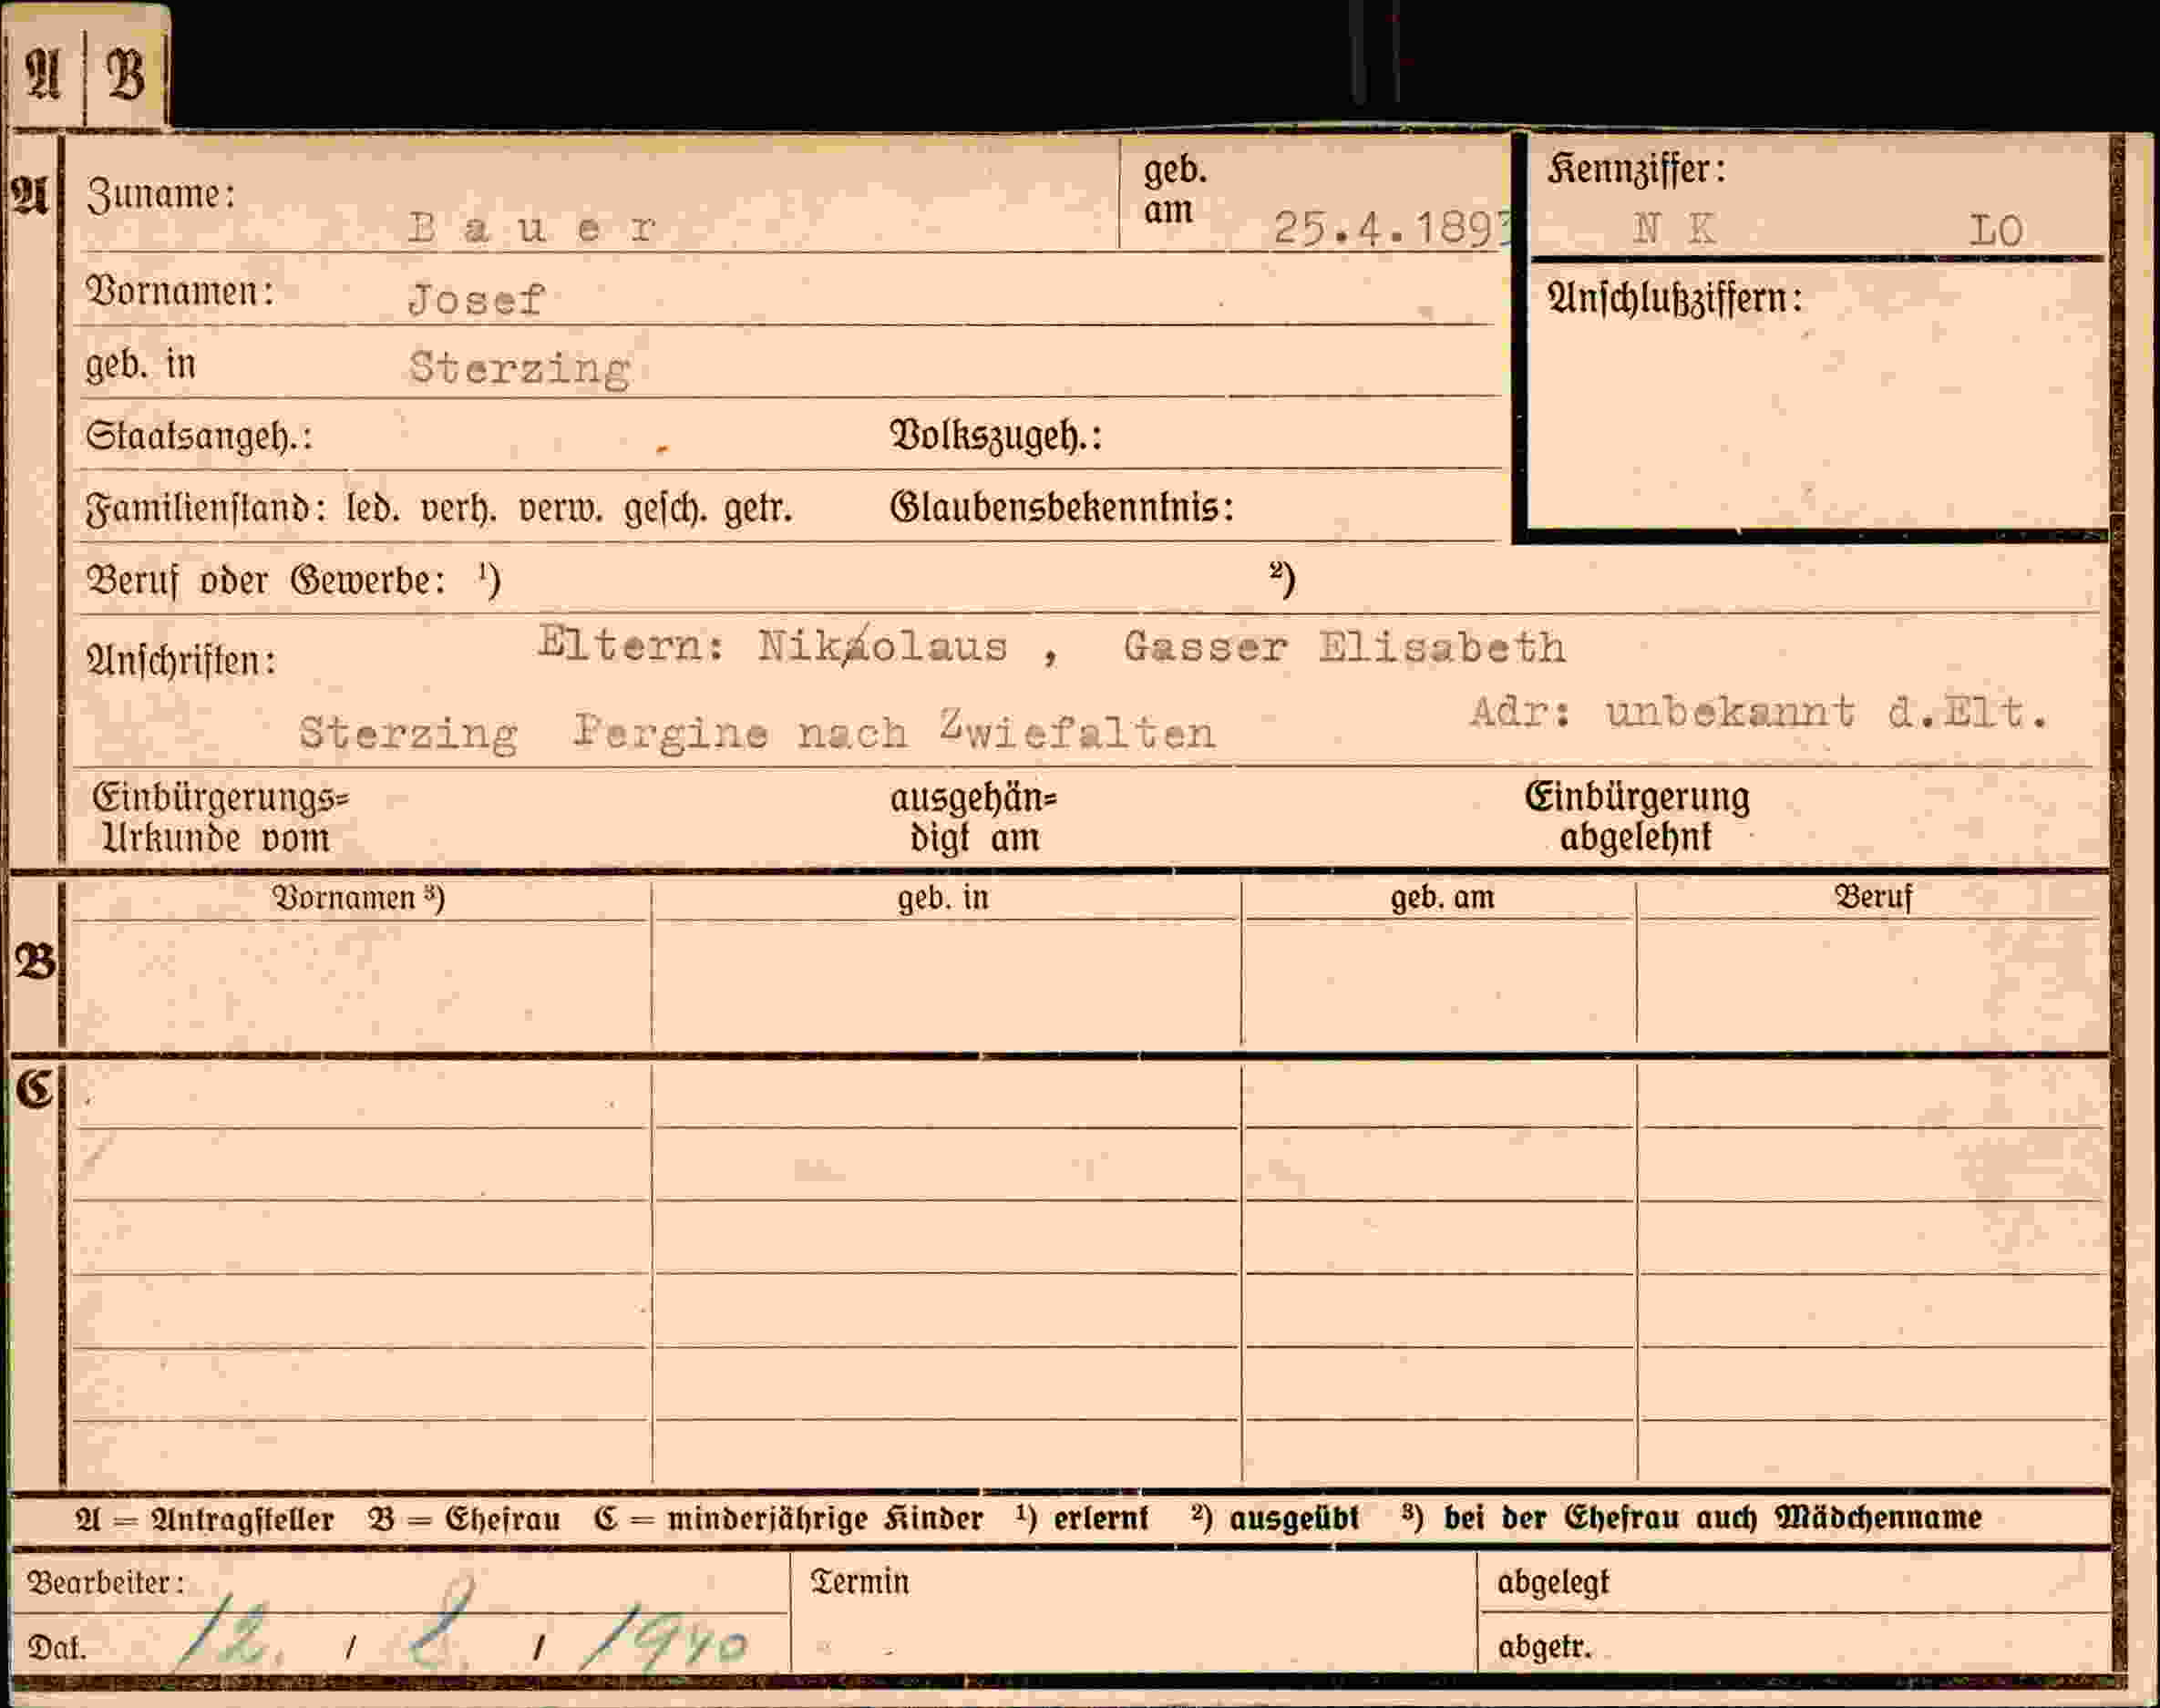 A B
A Zuname: Bauer geb. am 25.4.1893 Kennziffer: N K LO
Vornamen: Josef Anschlußziffern:
geb. in Sterzing
Staatsangeh.: Volkszugeh.:
Familienstand: led. verh. verw. gesch. getr. Glaubensbekenntnis:
Beruf oder Gewerbe: ¹) ²)
Anschriften: Eltern: Nikolaus , Gasser Elisabeth
Sterzing Pergine nach Zwiefalten Adr: unbekannt d.Elt.
Einbürgerungs= ausgehän= Einbürgerung
Urkunde vom digt am abgelehnt
Vornamen ³) geb. in geb. am Beruf
B
C
A = Antragsteller B = Ehefrau C = minderjährige Kinder ¹) erlernt ²) ausgeübt ³) bei der Ehefrau auch Mädchenname
Bearbeiter: Termin abgelegt
Dat. 12. / 2. / 1940 abgetr.